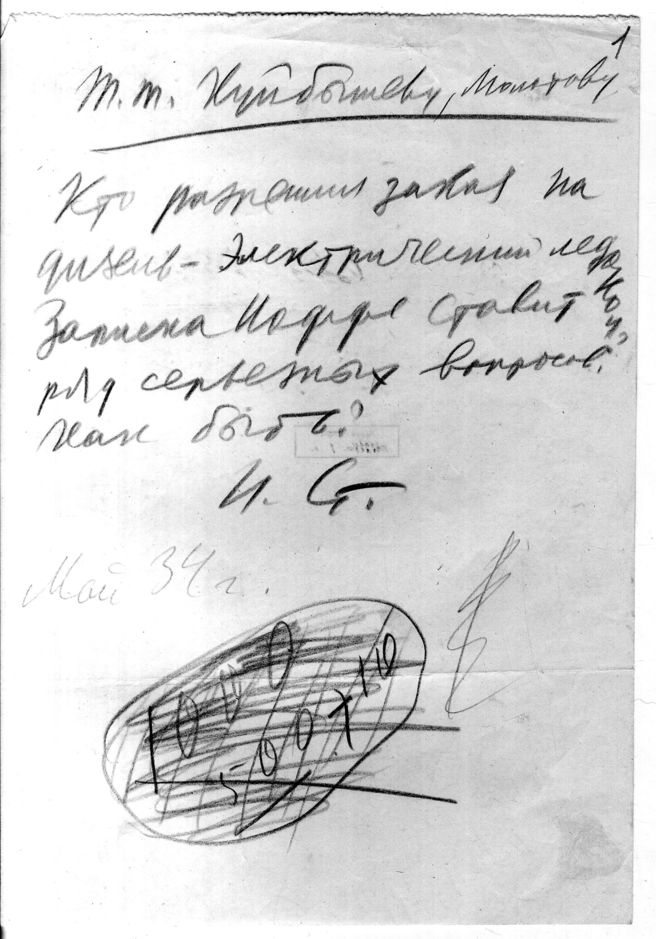 1
Т.т. Куйбышеву, Молотову
Кто разрешил заказ на
дизель-электрический ледокол?
Записка Иоффе ставит
ряд серьезных вопросов.
Как быть?
И. Ст.
Май 34 г.
1000
500 т × 10